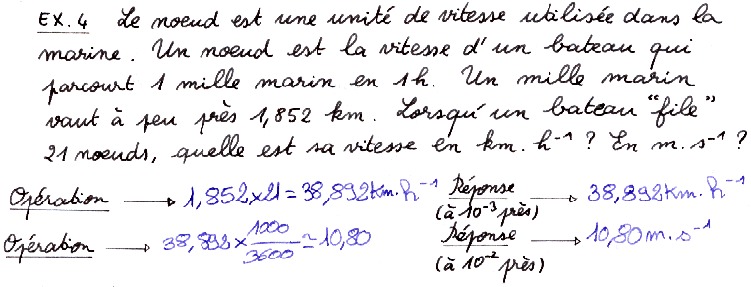 EX.4 Le noeud est une unité de vitesse utilisée dans la
marine. Un noeud est la vitesse d'un bateau qui
parcourt 1 mille marin en 1h. Un mille marin
vaut à peu près 1,852 km. Lorsqu'un bateau "file"
21 noeuds, quelle est sa vitesse en km.h⁻¹ ? En m.s⁻¹ ?
Opération → 1,852 × 21 = 38,892 km.h⁻¹ Réponse (à 10⁻³ près) → 38,892 km.h⁻¹
Opération → 38,892 × 1000/3600 ≃ 10,80 Réponse (à 10⁻² près) → 10,80 m.s⁻¹